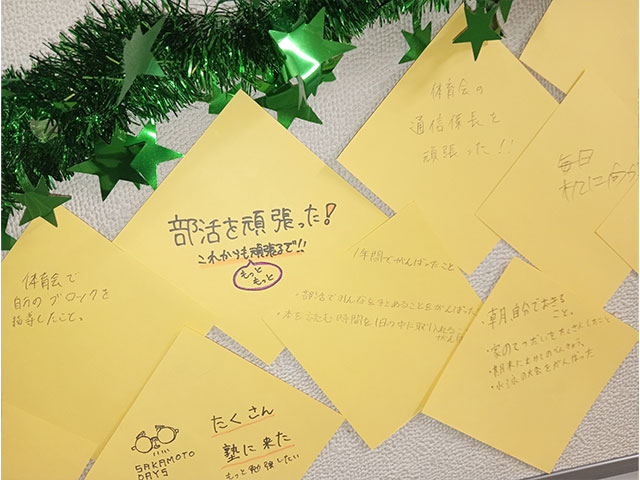 体育会の
通信係長を
頑張った!!
毎日
部活を頑張った!
これからも頑張るで!!
もっと
もっと
体育会で
自分のブロックを
指導したこと。
1年間でがんばったこと
・部活でみんなをまとめることをがんばった
・本を読む時間を1日の中に取り入れること
がんばり
・朝、自分でおきる
こと。
・家のてつだいをたくさんしたこと
・水泳の大会をがんばった
たくさん
塾に来た
もっと勉強したい
SAKAMOTO
DAYS